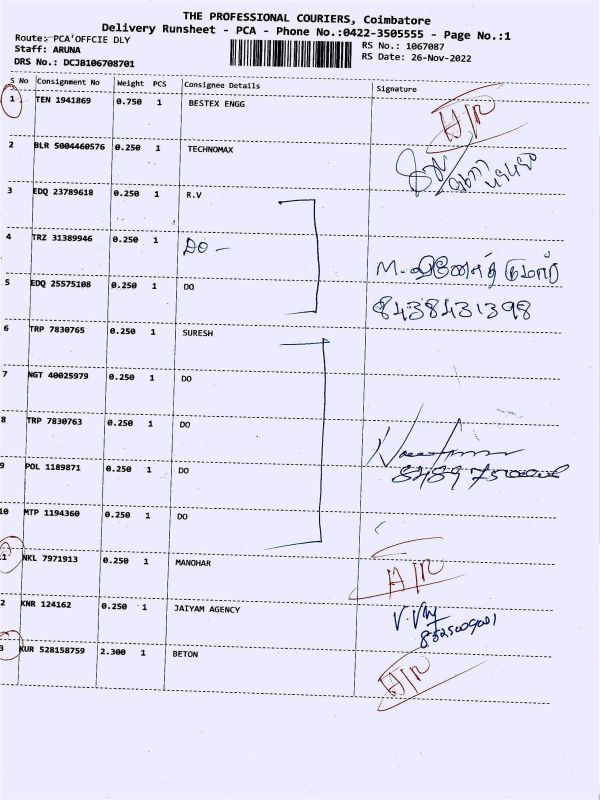 THE PROFESSIONAL COURIERS, Coimbatore
Delivery Runsheet - PCA - Phone No.:0422-3505555 - Page No.:1
Route: PCA'OFFCIE DLY
Staff: ARUNA
DRS No.: DCJB106708701
RS No.: 1067087
RS Date: 26-Nov-2022
S No Consignment No Weight PCS Consignee Details Signature
1 TEN 1941869 0.750 1 BESTEX ENGG A/R
2 BLR 5004460576 0.250 1 TECHNOMAX
3 EDQ 23789618 0.250 1 R.V
4 TRZ 31389946 0.250 1 DO - M. வினோத் குமார்
5 EDQ 25575108 0.250 1 DO 8438431398
6 TRP 7830765 0.250 1 SURESH
7 NGT 40025979 0.250 1 DO
8 TRP 7830763 0.250 1 DO
9 POL 1189871 0.250 1 DO
10 MTP 1194360 0.250 1 DO
11 NKL 7971913 0.250 1 MANOHAR A/R
2 KNR 124162 0.250 1 JAIYAM AGENCY
3 KUR 528158759 2.300 1 BETON A/R